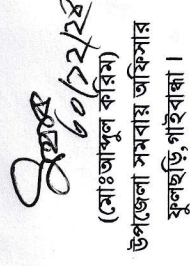 (মোঃআব্দুল করিম)
উপজেলা সমবায় অফিসার
ফুলছড়ি,গাইবান্ধা।